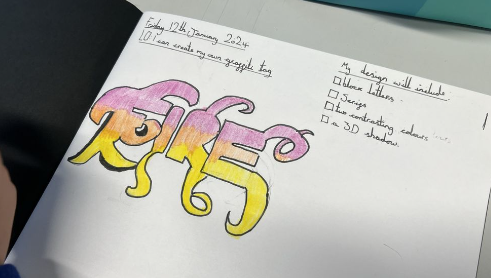 Friday 12th January 2024
LO: I can create my own graffiti tag
My design will include:
□ block letters.
□ Serifs
□ two contrasting colours
□ a 3D shadow.
FIRE